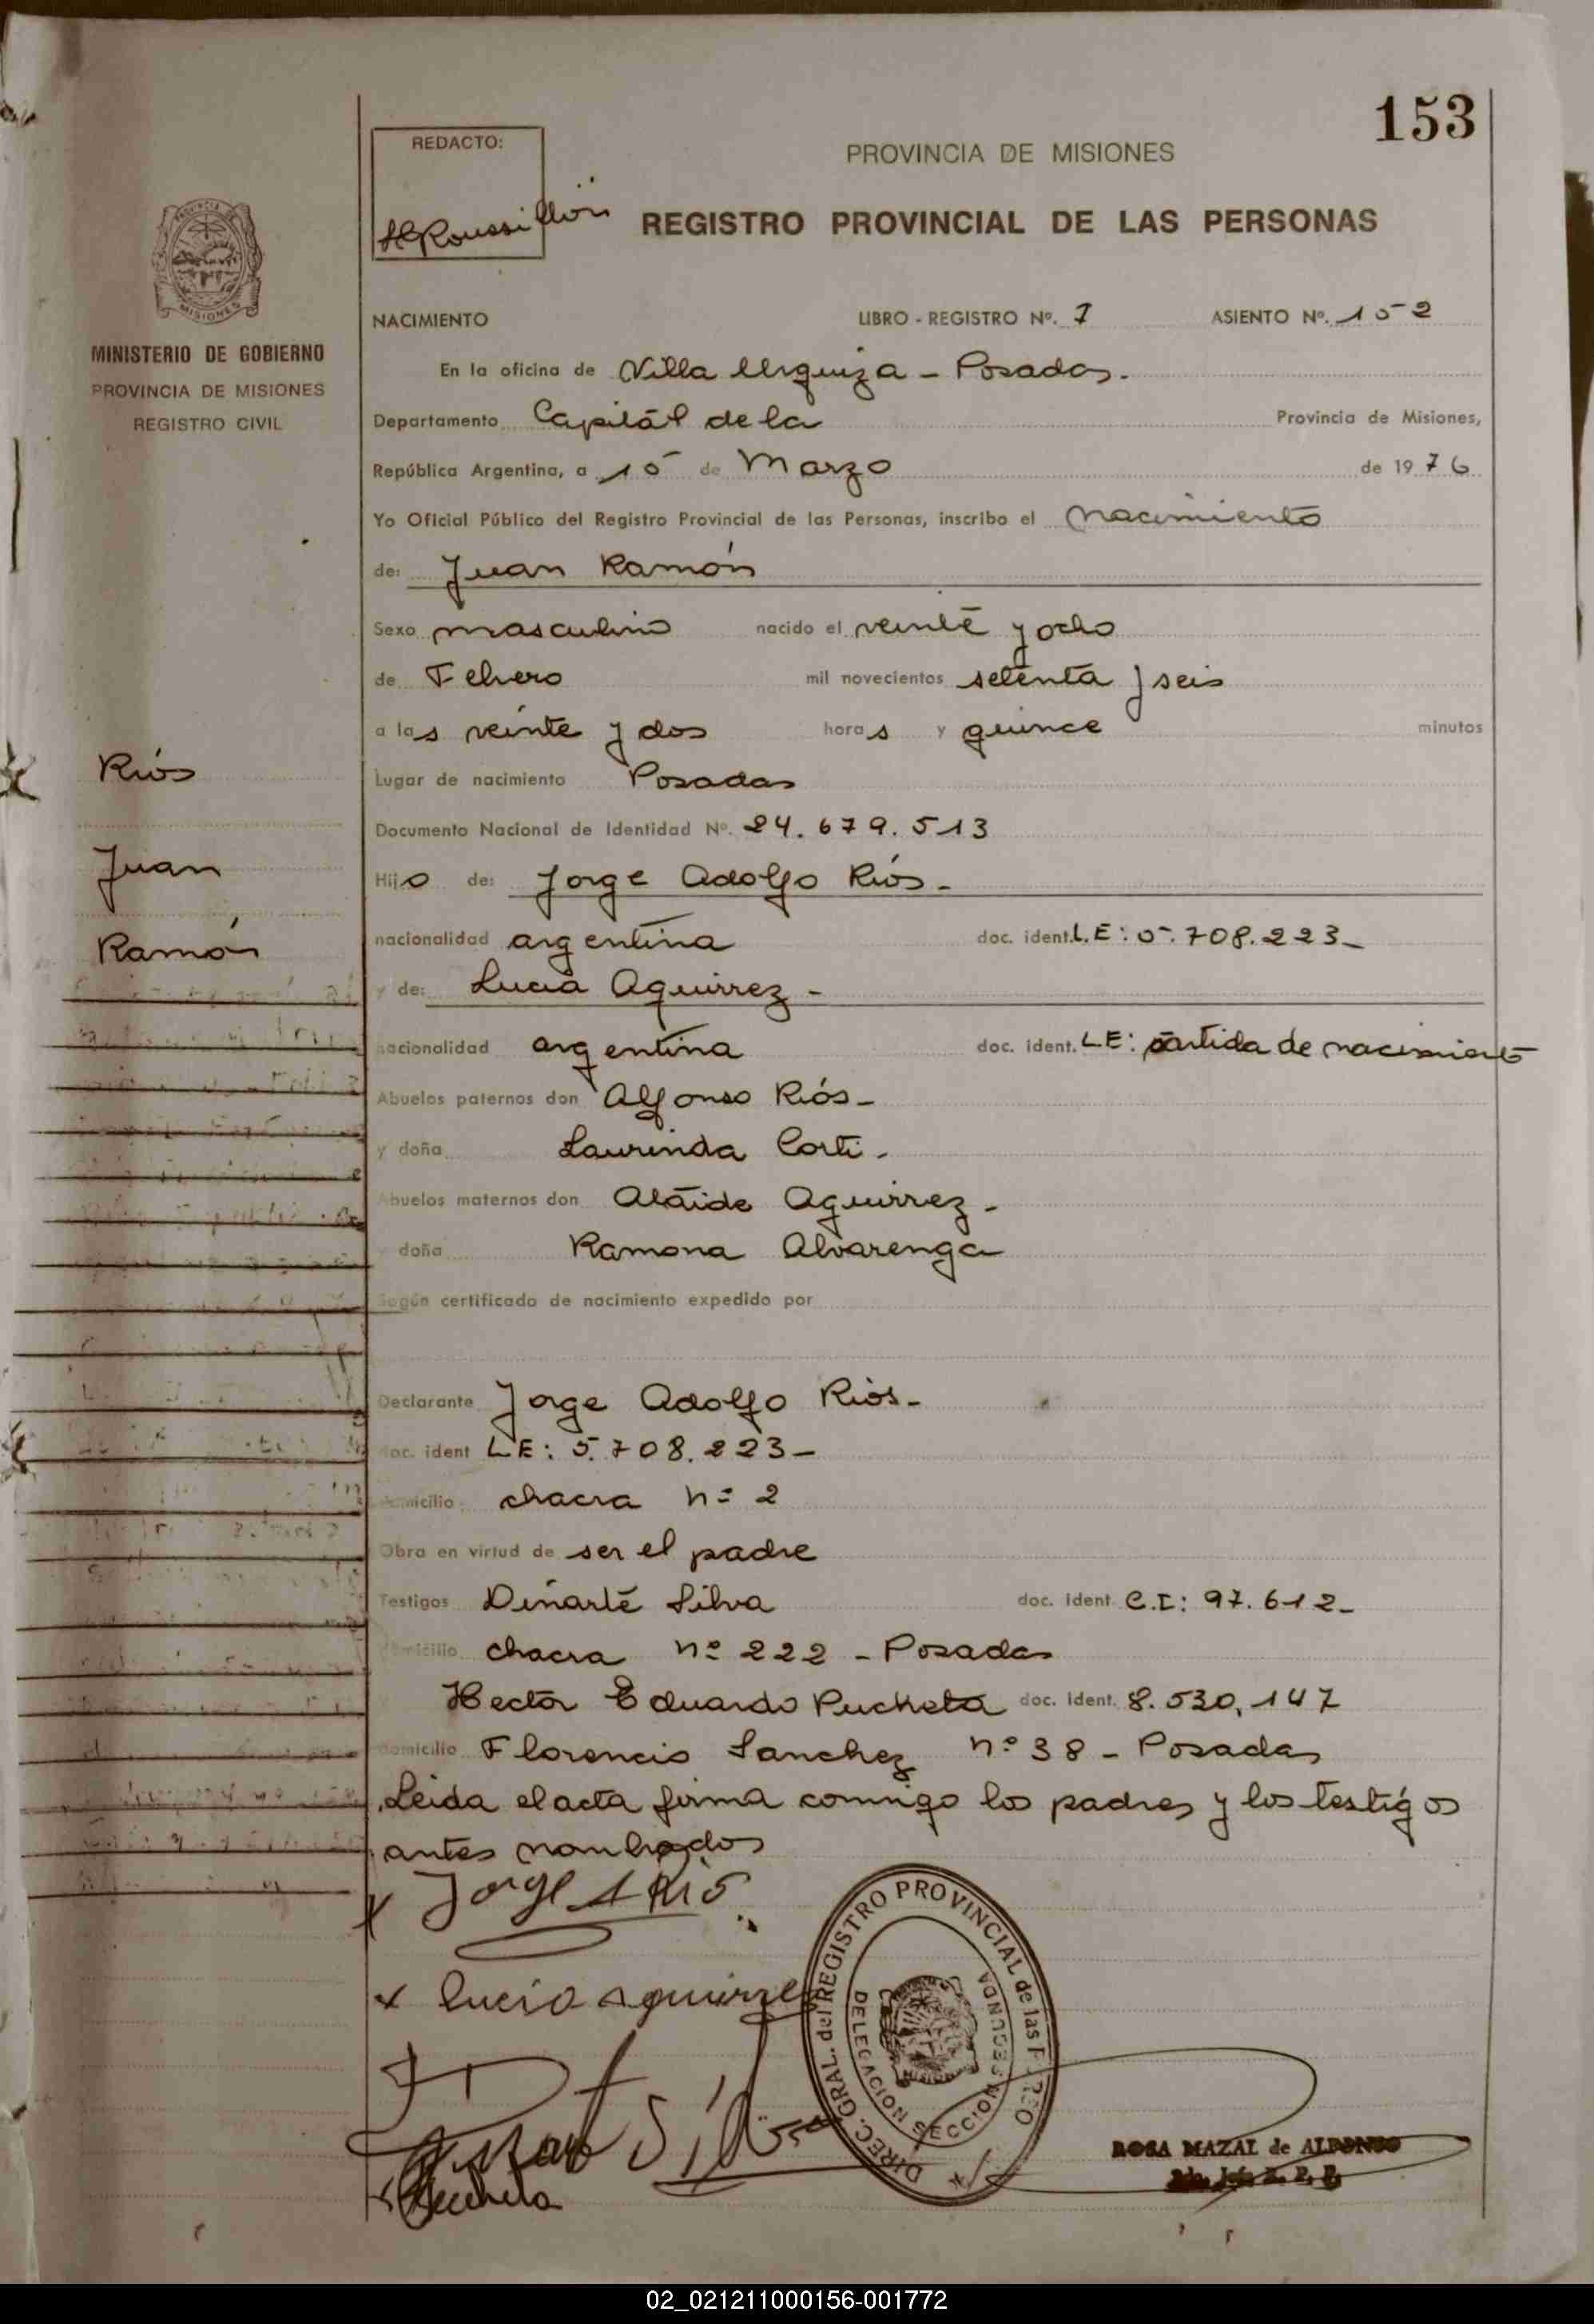 153
REDACTO:
PROVINCIA DE MISIONES
HRoussillón
REGISTRO PROVINCIAL DE LAS PERSONAS
PROVINCIA DE
MISIONES
MINISTERIO DE GOBIERNO
PROVINCIA DE MISIONES
REGISTRO CIVIL
NACIMIENTO LIBRO - REGISTRO Nº. 1 ASIENTO Nº. 152
En la oficina de Villa Urquiza - Posadas.
Departamento Capitál de la Provincia de Misiones,
República Argentina, a 15 de Marzo de 1976
Yo Oficial Público del Registro Provincial de las Personas, inscribo el nacimiento
de: Juan Ramón
Sexo masculino nacido el veinte y ocho
de Febrero mil novecientos setenta y seis
a las veinte y dos horas y quince minutos
Lugar de nacimiento Posadas
Documento Nacional de Identidad Nº. 24.679.513
Hijo de: Jorge Adolfo Riós -
nacionalidad argentina doc. ident. L.E: 5.708.223-
y de: Lucia Aguirrez -
nacionalidad argentina doc. ident. LE: partida de nacimiento
Abuelos paternos don Alfonso Riós -
y doña Laurinda Corti -
Abuelos maternos don Alaide Aguirrez -
y doña Ramona Alvarenga
Según certificado de nacimiento expedido por
Declarante Jorge Adolfo Riós -
doc. ident LE: 5.708.223-
domicilio chacra nº 2
Obra en virtud de ser el padre
Testigos Dinarte Silva doc. ident C.I: 97.612-
domicilio chacra nº 222 - Posadas
Hector Eduardo Pucheta doc. ident. 8.530.147
domicilio Florencio Sanchez nº 38 - Posadas
Leida el acta firma comnigo los padres y los testigos
antes nombrados
Riós
Juan
Ramón
x Jorge A Rios
x lucia aguirre
Silva
Pucheta
DIREC. GRAL. del REGISTRO PROVINCIAL de las
DELEGACION SECCION SEGUNDA
MISIONES
ROSA MAZAL de ALFONSO
02_021211000156-001772